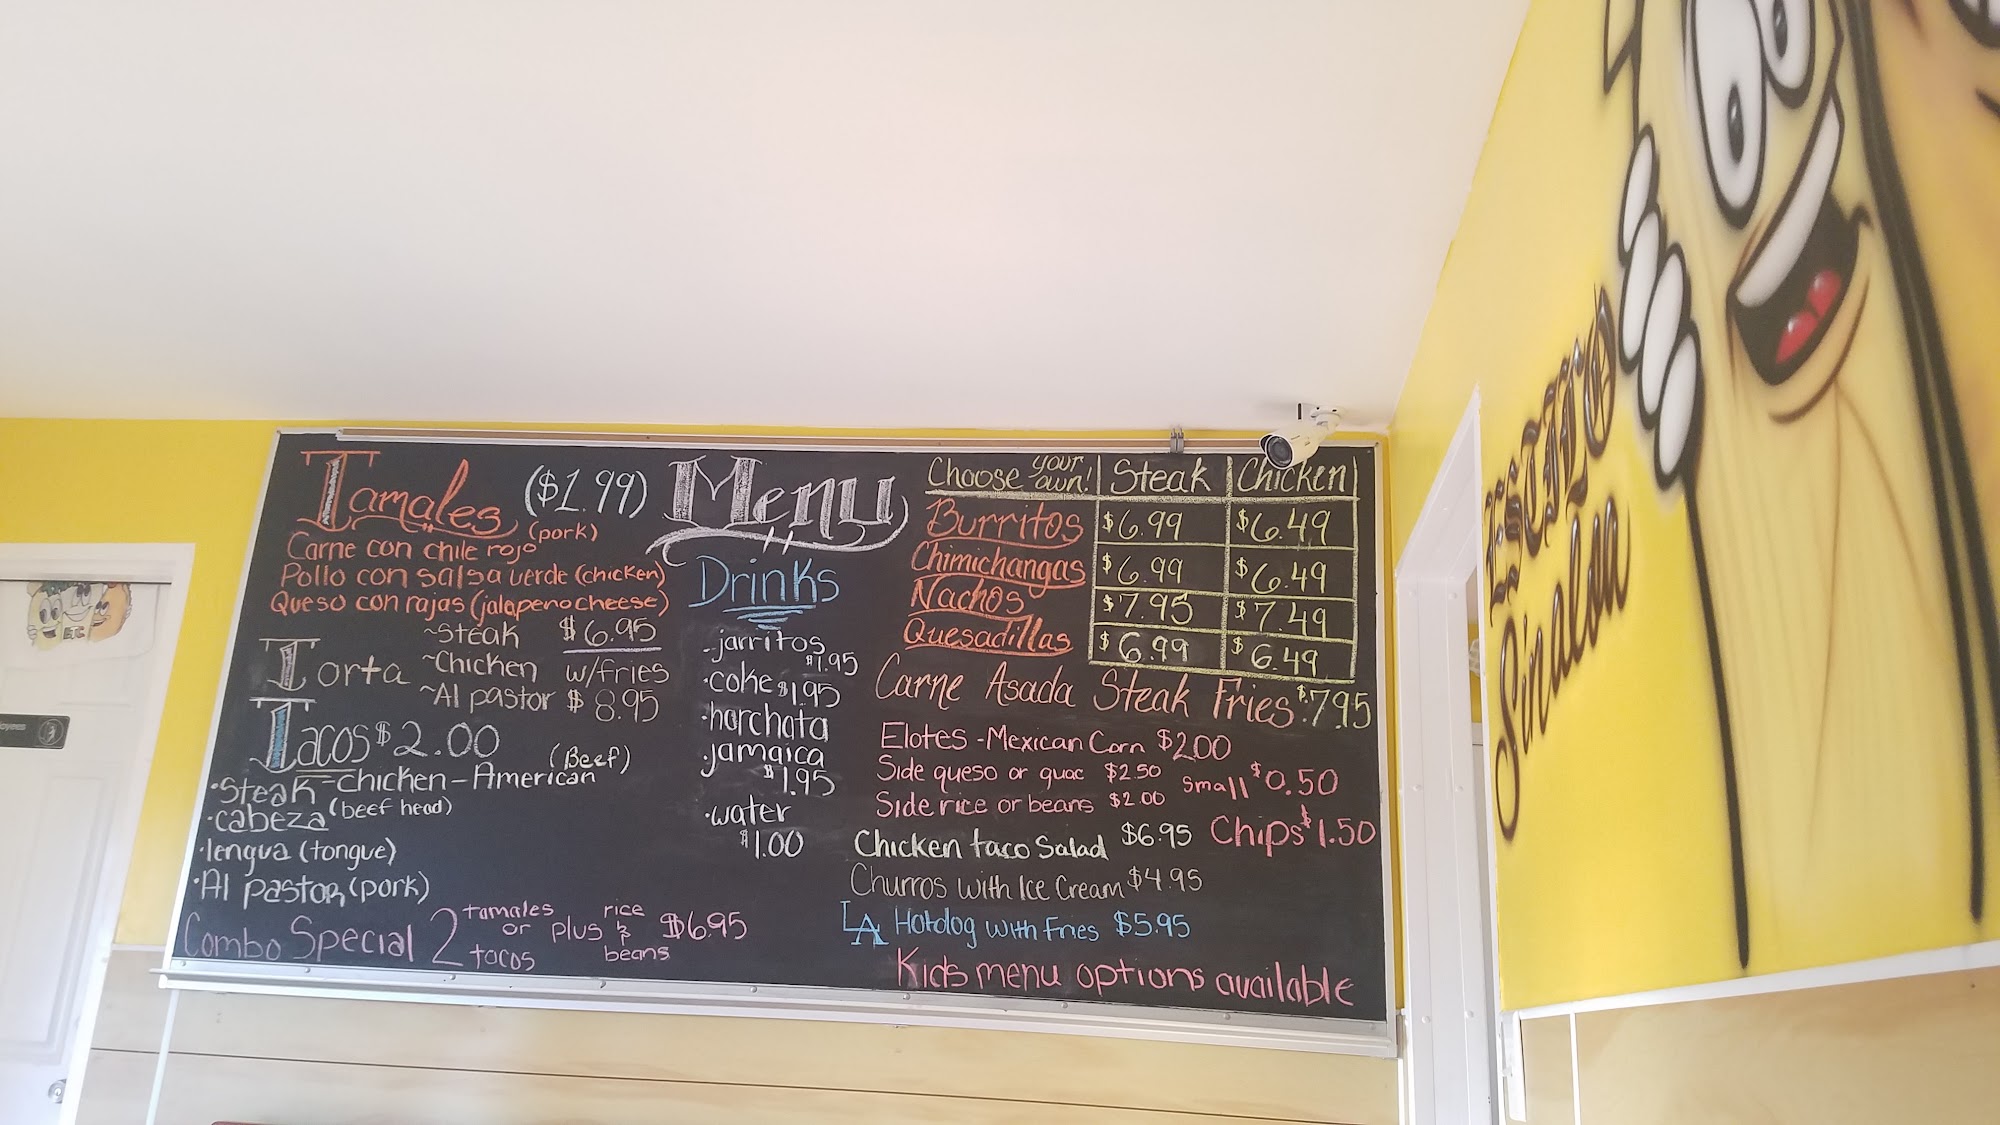 Tamales ($1.99)
Carne con chile rojo (pork)
Pollo con salsa verde (chicken)
Queso con rajas (jalapeno cheese)
Torta
~Steak $6.95
~Chicken w/fries
~Al pastor $8.95
Tacos $2.00
·Steak -Chicken -American (Beef)
·cabeza (beef head)
·lengua (tongue)
·Al pastor (pork)
Combo Special 2 tamales or tacos plus rice & beans $6.95
Menu
Drinks
·jarritos
$1.95
·coke $1.95
·horchata
·jamaica
$1.95
·water
$1.00
Choose your own! Steak Chicken
Burritos $6.99 $6.49
Chimichangas $6.99 $6.49
Nachos $7.95 $7.49
Quesadillas $6.99 $6.49
Carne Asada Steak Fries $7.95
Elotes - Mexican Corn $2.00
Side queso or guac $2.50 small $0.50
Side rice or beans $2.00
Chips $1.50
Chicken taco Salad $6.95
Churros with Ice Cream $4.95
LA Hotdog with Fries $5.95
Kids menu options available
ESTILO
Sinaloa
ETC